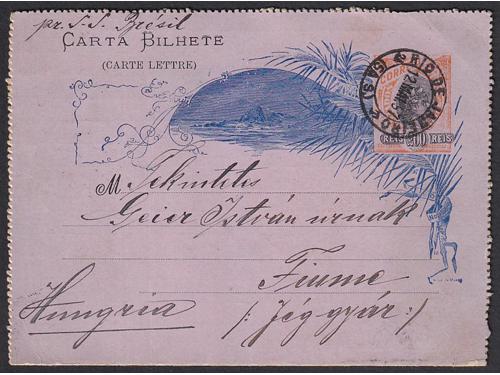 pr. S.S. Brésil
CARTA BILHETE
(CARTE LETTRE)
CORREIO
RIO DE JANEIRO
REIS 200 REIS
M. Tekintetes
Geier István úrnak
Fiume
Hungria
/: Jéggyár :/